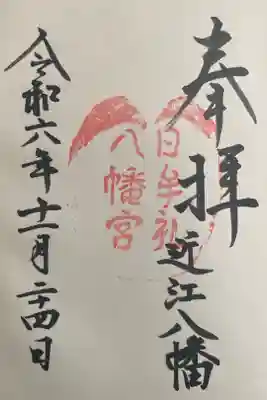 奉拝
近江八幡
日牟礼
八幡宮
令和六年十一月二十四日